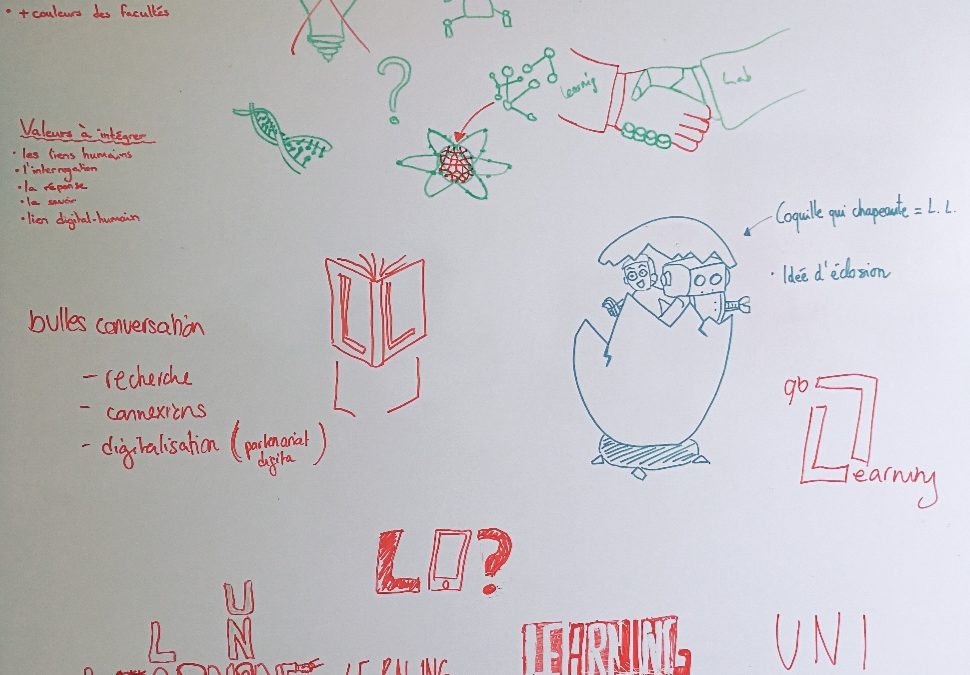 • + couleurs des facultés
?
Learnig
Lab
Valeurs à intégrer
• les liens humains
• l'interrogation
• la réponse
• la savoir
• lien digital-humain
Coquille qui chapeaute = L.L.
• Idée d'éclosion
L L
bulles conversation
- recherche
- connexions
- digitalisation (partenariat
digita)
qb
Learning
L ?
U
L N
LEARNING
UNI